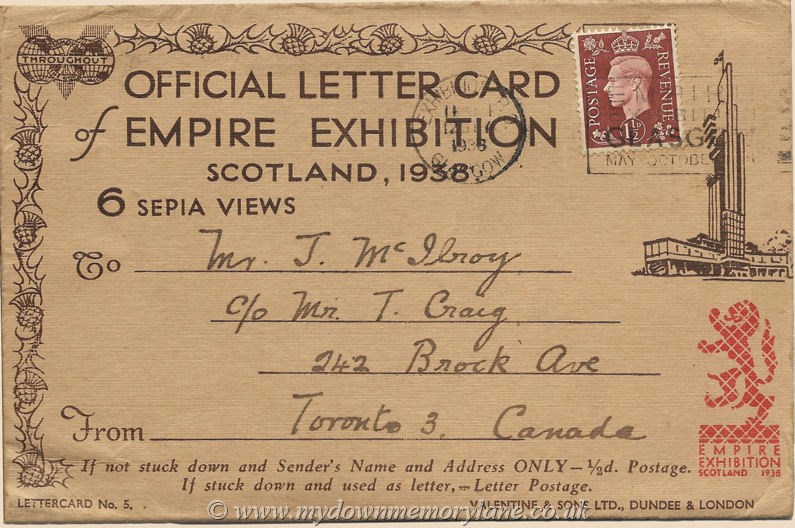 THROUGHOUT
OFFICIAL LETTER CARD
of EMPIRE EXHIBITION
SCOTLAND, 1938.
6 SEPIA VIEWS
POSTAGE REVENUE
1½D
1938
GLASGOW
MAY OCTOBER
To Mr. J. McIlroy
c/o Mr. T. Craig
242 Brock Ave
Toronto 3. Canada
From
EMPIRE
EXHIBITION
SCOTLAND 1938
If not stuck down and Sender's Name and Address ONLY—½d. Postage.
If stuck down and used as letter,—Letter Postage.
LETTERCARD No. 5. VALENTINE & SONS LTD., DUNDEE & LONDON
© www.mydownmemorylane.co.uk